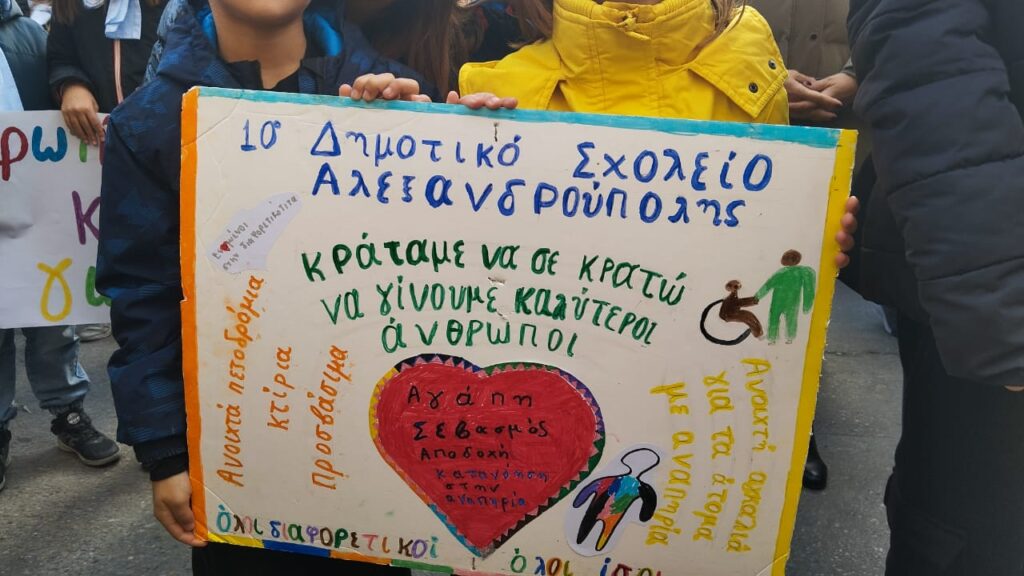 1ο Δημοτικό Σχολείο
Αλεξανδρούπολης
στην διαφορετικότητα
κράταμε να σε κρατώ
να γίνουμε καλύτεροι
άνθρωποι
Ανοιχτά πεζοδρόμια
κτίρια
Προσβάσιμα
Αγάπη
Σεβασμός
Αποδοχή
κατανόηση
στην
αναπηρία
Ανοιχτή αγκαλιά
για τα άτομα
με αναπηρία
όλοι διαφορετικοί
όλοι ίσοι